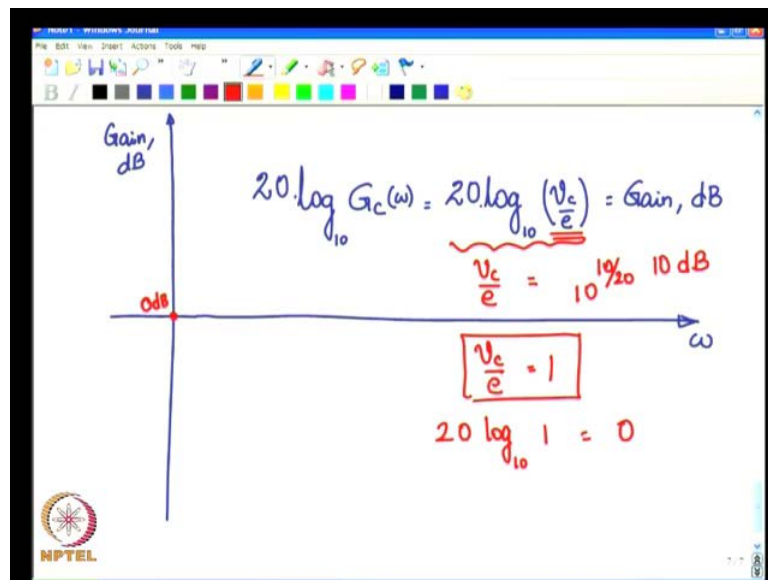 Note1 - Windows Journal
File Edit View Insert Actions Tools Help
B I
Gain,
dB
20.log₁₀ Gc(ω) = 20.log₁₀ (Vc/e) = Gain, dB
Vc/e = 10^10/20 10 dB
0dB
ω
Vc/e = 1
20 log₁₀ 1 = 0
NPTEL
7/7